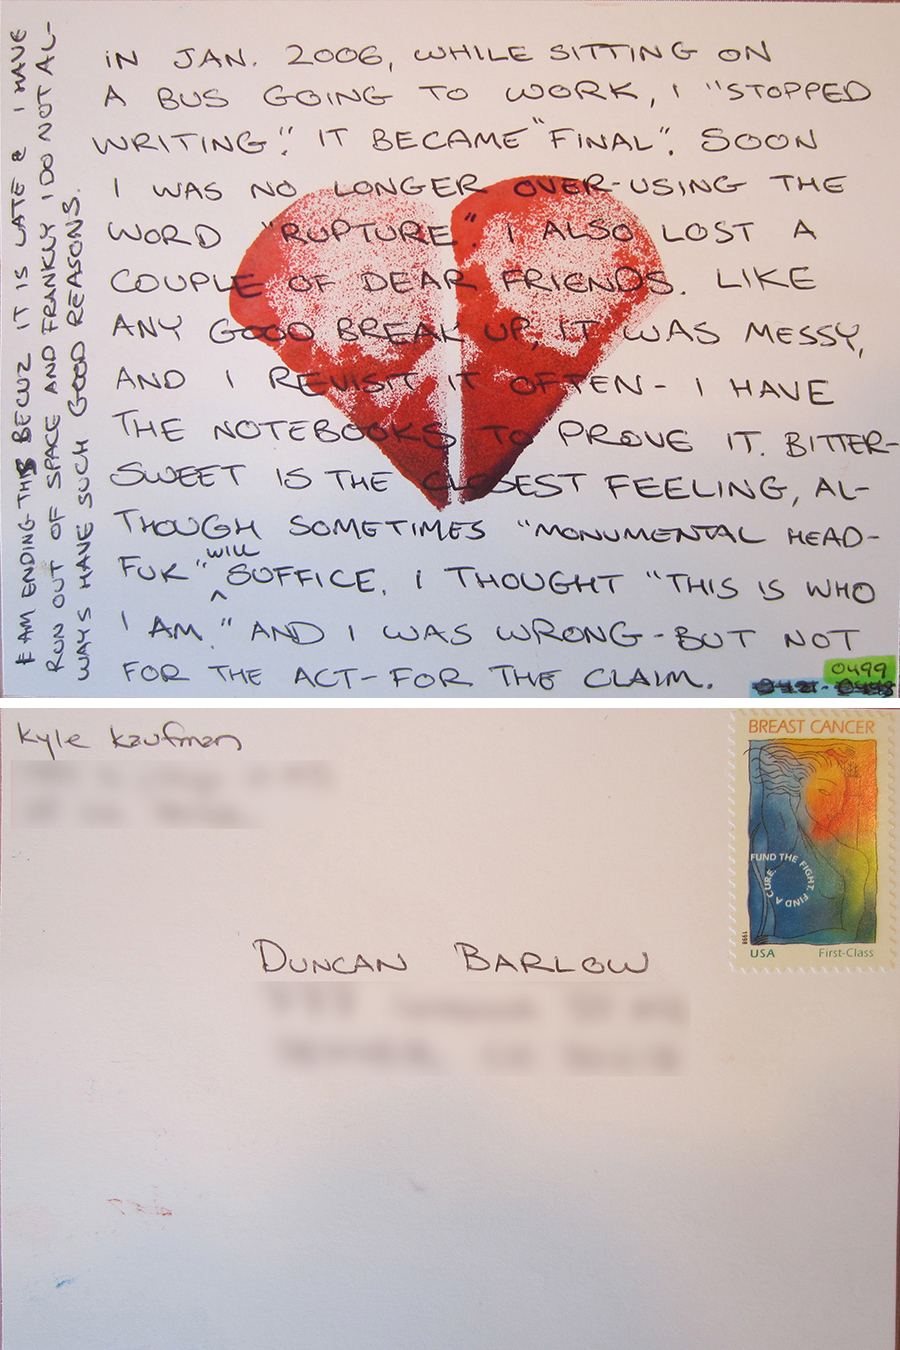 IN JAN. 2006, WHILE SITTING ON
A BUS GOING TO WORK, I "STOPPED
WRITING". IT BECAME "FINAL". SOON
I WAS NO LONGER OVER-USING THE
WORD "RUPTURE". I ALSO LOST A
COUPLE OF DEAR FRIENDS. LIKE
ANY GOOD BREAK UP, IT WAS MESSY,
AND I REVISIT IT OFTEN - I HAVE
THE NOTEBOOKS TO PROVE IT. BITTER-
SWEET IS THE CLOSEST FEELING, AL-
THOUGH SOMETIMES "MONUMENTAL HEAD-
FUK" WILL SUFFICE. I THOUGHT "THIS IS WHO
I AM." AND I WAS WRONG - BUT NOT
FOR THE ACT - FOR THE CLAIM.
I AM ENDING THIS BECUZ IT IS LATE & I HAVE
RUN OUT OF SPACE AND FRANKLY I DO NOT AL-
WAYS HAVE SUCH GOOD REASONS.
0499
Kyle Kaufman
BREAST CANCER
FUND THE FIGHT. FIND A CURE.
1998
USA First-Class
DUNCAN BARLOW